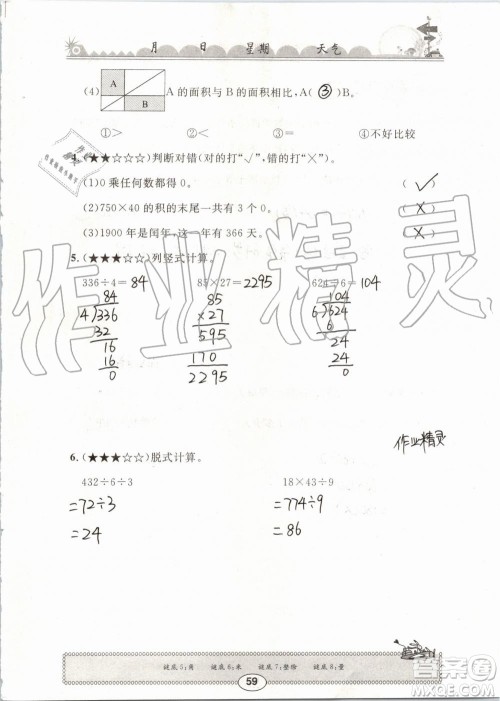 月 日 星期 天气
(4) A B A 的面积与 B 的面积相比,A( ③ )B。
①> ②< ③= ④不好比较
4.(★★☆☆☆)判断对错(对的打“√”,错的打“×”)。
(1)0 乘任何数都得 0。 ( √ )
(2)750×40 的积的末尾一共有 3 个 0。 ( × )
(3)1900 年是闰年,这一年有 366 天。 ( × )
5.(★★★☆☆)列竖式计算。
336÷4= 84 85×27= 2295 624÷6= 104
84 85 104
4 336 ×27 6 624
32 595 6
16 170 24
16 2295 24
0 0
作业精灵
作业精灵
6.(★★★☆☆)脱式计算。
432÷6÷3 18×43÷9
=72÷3 =774÷9
=24 =86
谜底5:角 谜底6:米 谜底7:整除 谜底8:量
59
答案圈
MXQE.COM